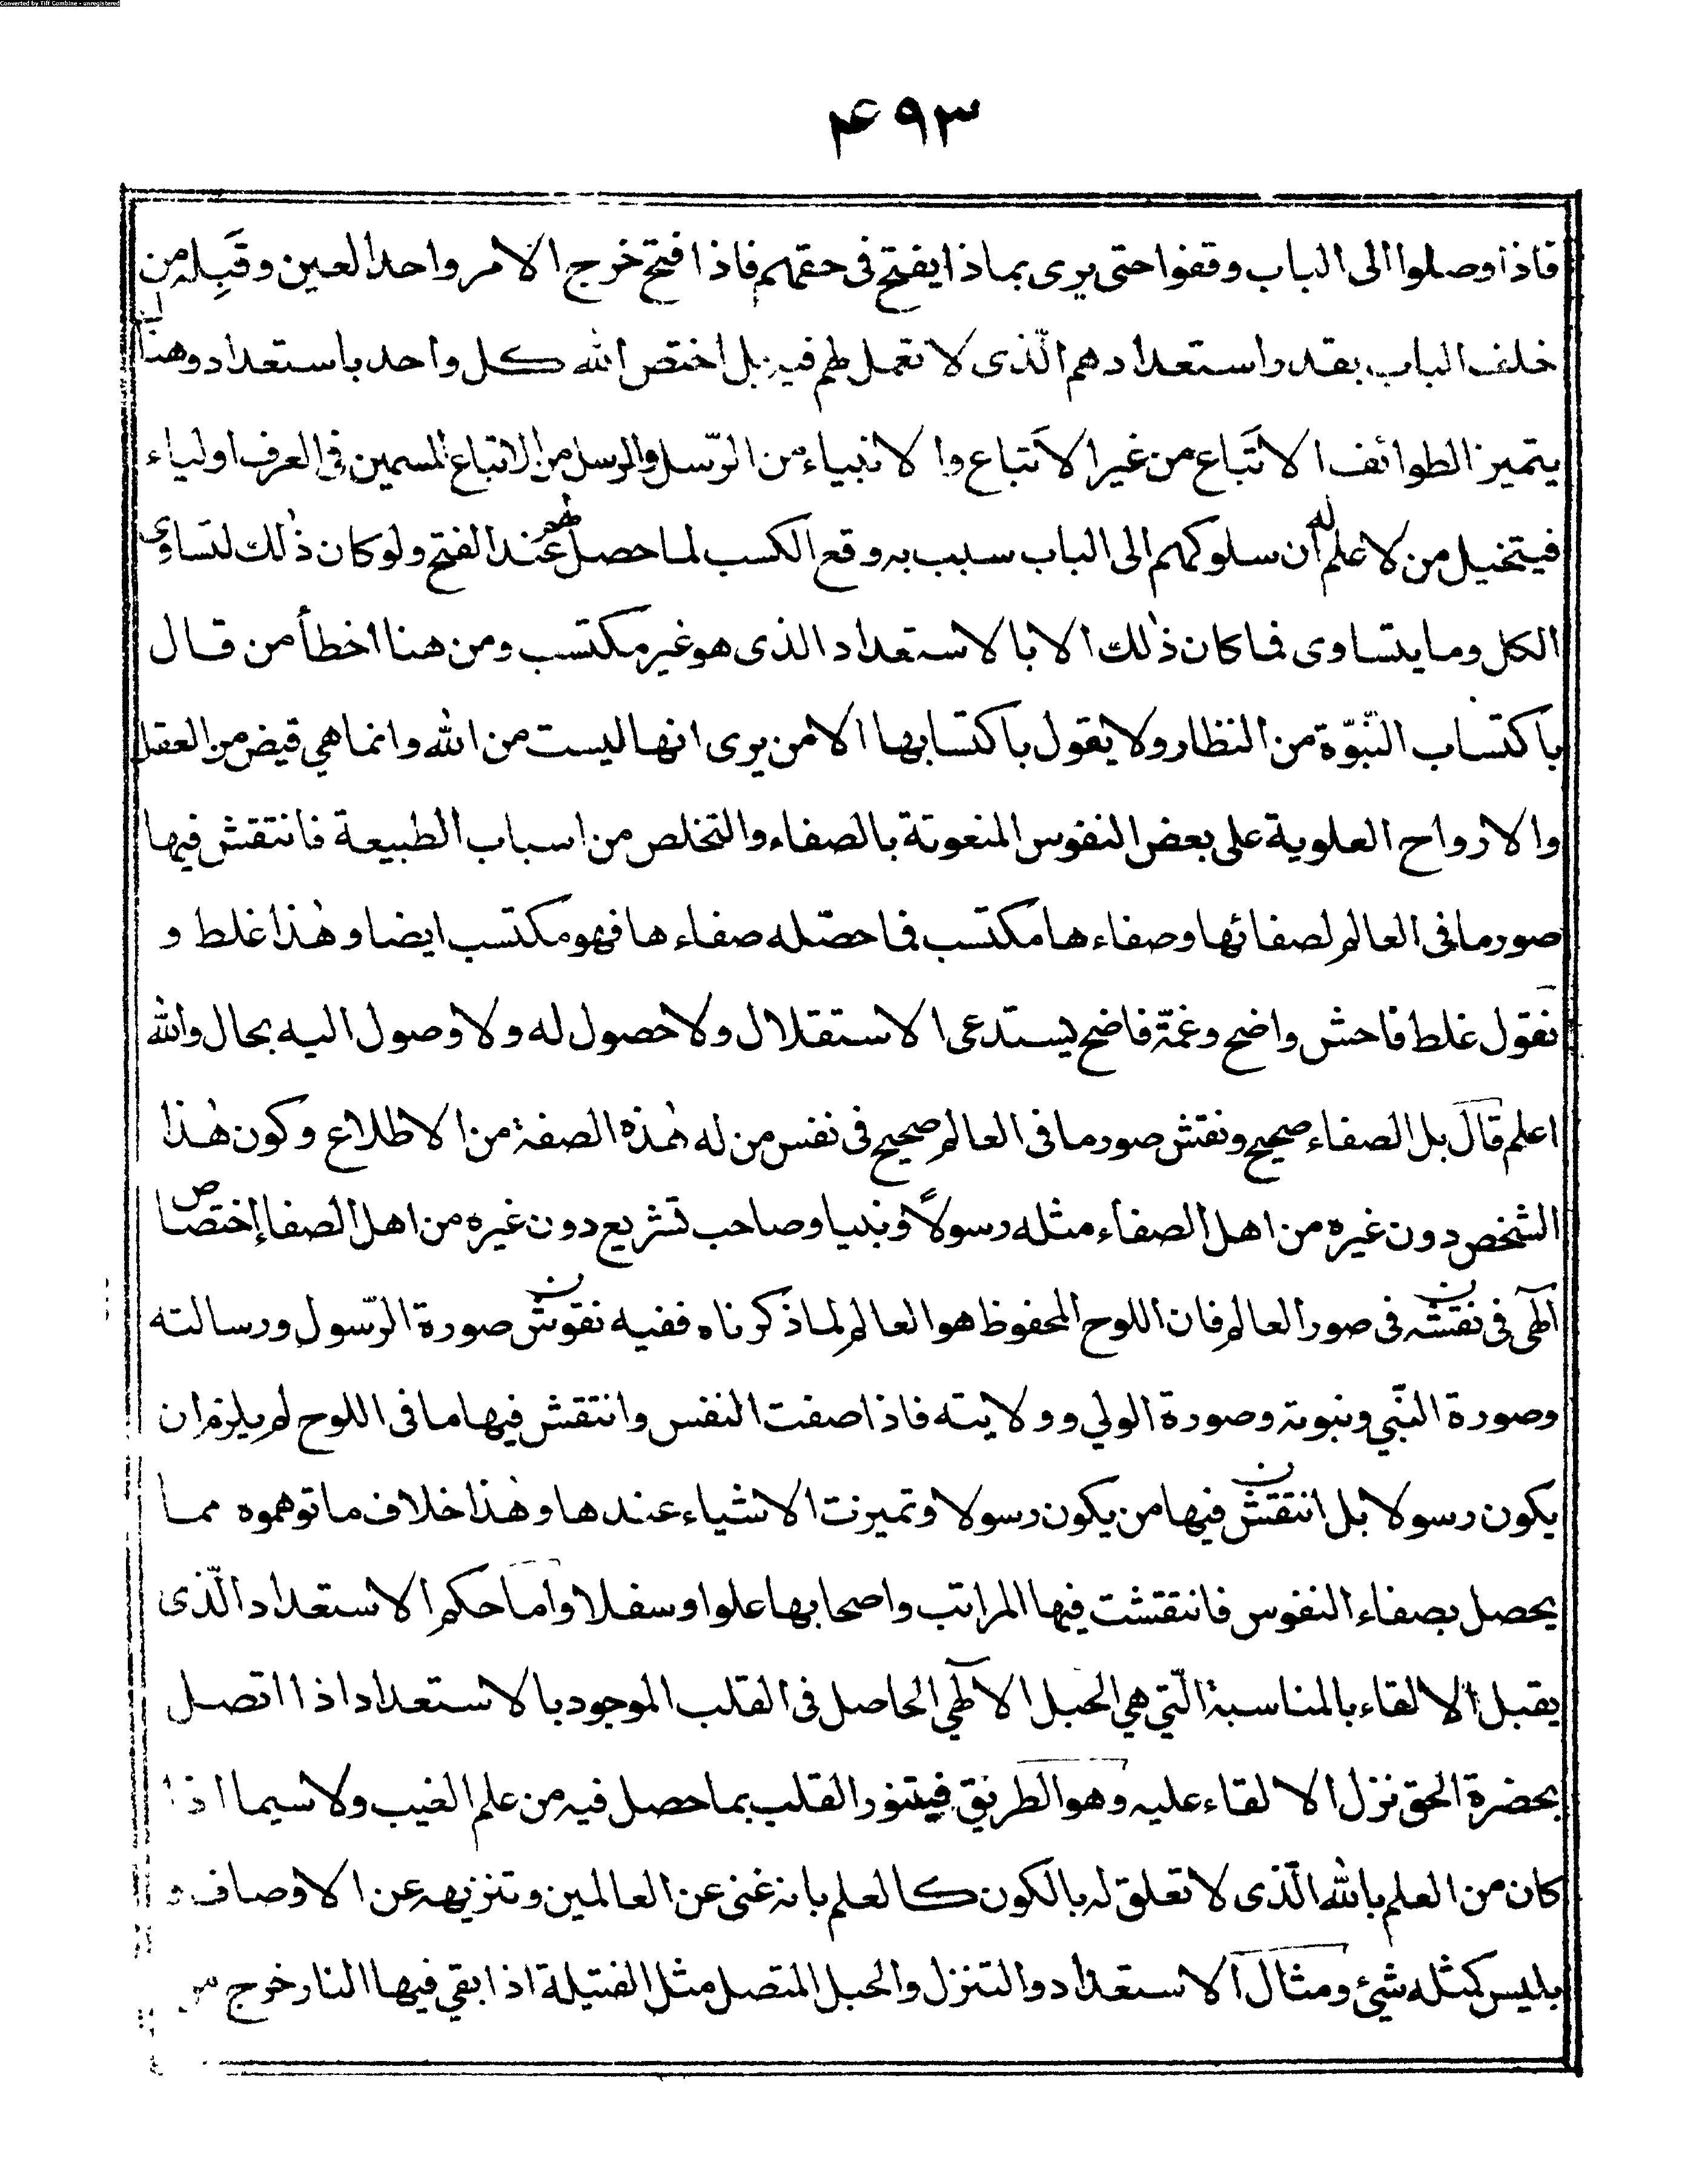 Converted by Tiff Combine - unregistered
۴۹۳
فاذا وصلوا الى الباب وقفوا حتى يرى بماذا يفتح فى حقهم فاذا فتح خرج الامر واحد العين وقَبِله من
خلف الباب بقدر استعدادهم الّذى لا تعمل لهم فيه بل اختص الله كل واحد باستعداد وهنا
يتميز الطوائف الاتَباع من غير الاَتباع والانبياء من الرّسل والرسل من الاتباع المسمين فى العرف اولياء
فيتخيل من لا علم له ان سلوكهم الى الباب سبب به وقع الكسب لما حصل لهم عند الفتح ولو كان ذٰلك لتساوى
الكل وما يتساوى فما كان ذٰلك الا بالاستعداد الذى هو غير مكتسب ومن هنا اخطأ من قال
باكتساب النّبوّة من النظار ولا يقول باكتسابها الا من يرى انها ليست من الله وانما هي فيض من العقل
والارواح العلوية على بعض النفوس المنعوتة بالصفاء والتخلص من اسباب الطبيعة فانتقش فيها
صور ما فى العالم لصفائها وصفاءها مكتسب فما حصّله صفاءها فهو مكتسب ايضا وهٰذا غلط و
نقول غلط فاحش واضح وغمّة فاضح يستدعى الاستقلال ولا حصول له ولا وصول اليه بحال والله
اعلم قال بل الصفاء صحيح ونقش صور ما فى العالم صحيح فى نفس من له هٰذه الصفة من الاطلاع وكون هٰذا
الشخص دون غيره من اهل الصفاء مثله رسولاً ونبيا وصاحب تشريع دون غيره من اهل الصفا إختصاص
الٰهى فى نقشه فى صور العالم فان اللوح المحفوظ هو العالم لما ذكرناه ففيه نقوش صورة الرّسول ورسالته
وصورة النّبي ونبوته وصورة الولي وولايته فاذا صفت النفس وانتقش فيها ما فى اللوح لم يلزم ان
يكون رسولا بل انتقش فيها من يكون رسولا وتميزت الاشياء عندها وهٰذا خلاف ما توهموه مما
يحصل بصفاء النفوس فانتقشت فيها المراتب واصحابها علوا وسفلا واما حكم الاستعداد الّذى
يقبل الالقاء بالمناسبة الّتي هي الحبل الالٰهي الحاصل فى القلب الموجود بالاستعداد اذا اتصل
بحضرة الحق نزل الالقاء عليه وهو الطريق فيتنور القلب بما حصل فيه من علم الغيب ولا سيما اذا
كان من العلم بالله الّذى لا تعلق له بالكون كالعلم بانه غنى عن العالمين وتنزيهه عن الاوصاف و
بليس كمثله شئ ومثال الاستعداد والتنزل والحبل المتصل مثل الفتيلة اذا بقي فيها النار خرج من